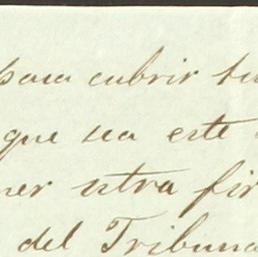 para cubrir tu
que sea este
ner otra fir
del Tribuna